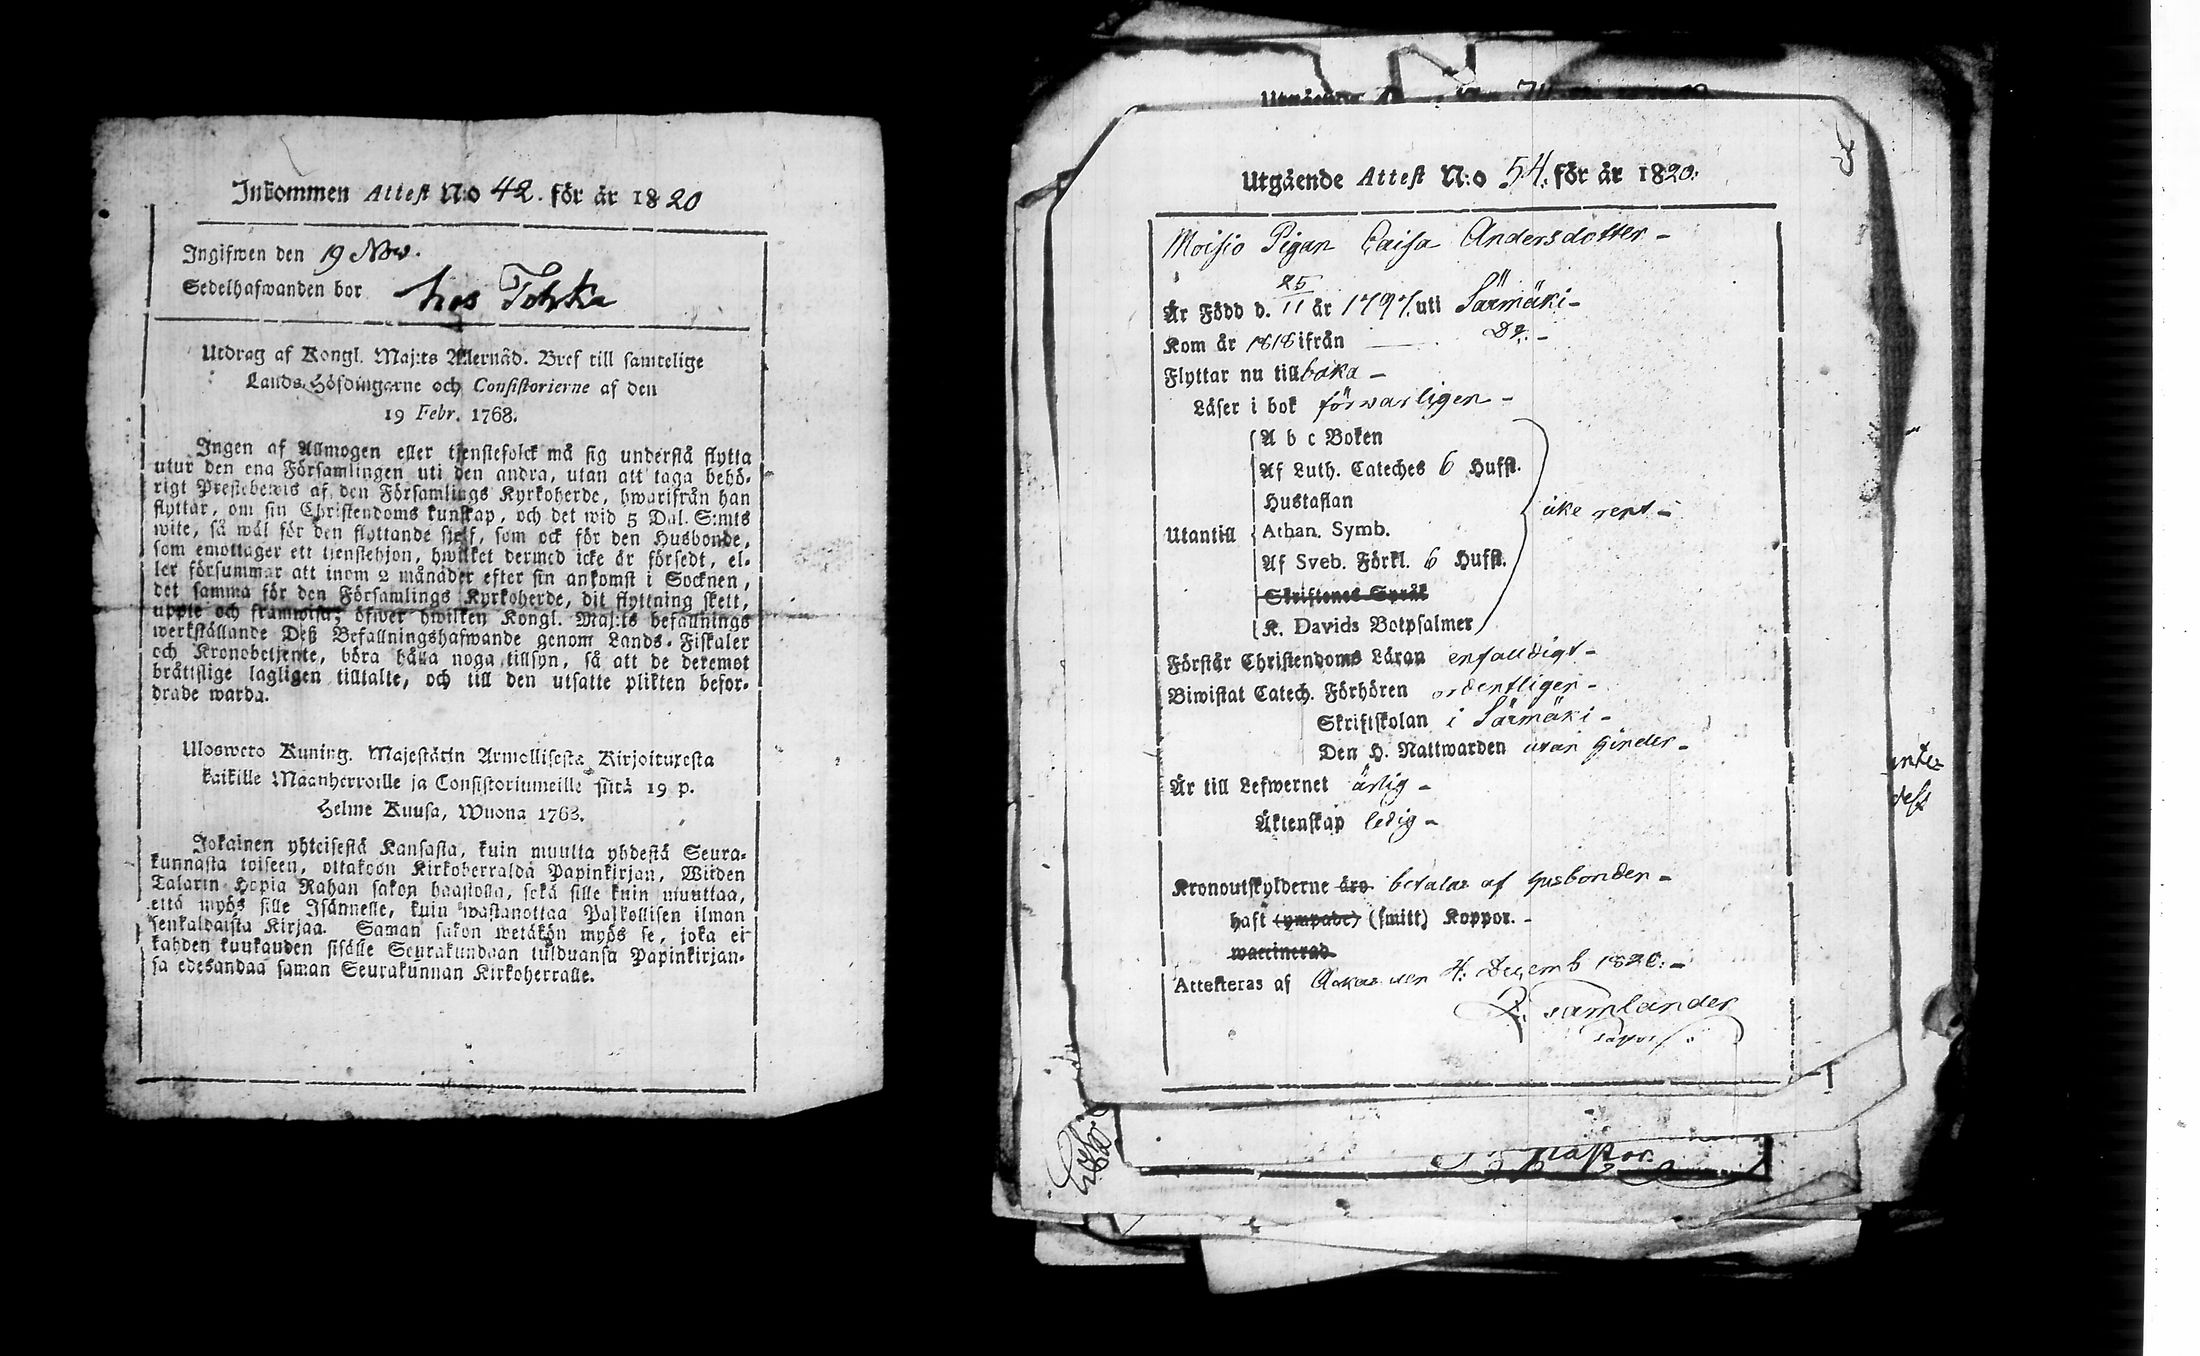 Inkommen Attest N:o 42. för år 1820
Ingifwen den 19 Nov.
Sedelhafwanden bor hos Tohka
Utdrag af Kongl. Maj:ts Allernåd. Bref till samtelige
Lands-Höfdingarne och Consistorierne af den
19 Febr. 1768.
Ingen af Allmogen eller tjenstefolck må sig understå flytta
utur den ena Församlingen uti den andra, utan att taga behö-
rigt Prestebewis af den Församlings Kyrkoherde, hwarifrån han
flyttar, om sin Christendoms kunskap, och det wid 5 Dal. S:mts
wite, så wäl för den flyttande sjelf, som ock för den Husbonde,
som emottager ett tjenstehjon, hwilket dermed icke är försedt, el-
ler försummar att inom 2 månader efter sin ankomst i Socknen,
det samma för den Församlings Kyrkoherde, dit flyttning skett,
uppte och framwisa; öfwer hwilken Kongl. Maj:ts befallnings
werkställande Deß Befallningshafwande genom Lands-Fiskaler
och Kronobetjente, böra hålla noga tillsyn, så att de deremot
bråttslige lagligen tilltalte, och till den utsatte plikten befor-
drade warda.
Uloswето Kuning. Majestätin Armollisesta Kirjoituxesta
kaikille Maanherroille ja Consistoriumeille siitä 19 p.
Helme Kuusa, Wuona 1768.
Jokainen yhteisestä Kansasta, kuin muutta yhdestä Seura-
kunnasta toiseen, ottakoon Kirkoherralda Papinkirjan, Wiiden
Talarin Hopia Rahan sakon haastolla, sekä sille kuin muuttaa,
että myös sille Isännelle, kuin wastanottaa Palkollisen ilman
senkaldaista Kirjaa. Saman sakon wetäkön myös se, joka ei
kahden kuukauden sisälle Seurakundaan tulduansa Papinkirjan-
sa edesandaa saman Seurakunnan Kirkoherralle.
Utgående Attest N:o 54. för år 1820.
Moisio Pigan Caisa Andersdotter -
Är Född d. 25/11 år 1797. uti Särmäki -
Kom år 1818 ifrån Do. -
Flyttar nu tillbaka -
Läser i bok förswarligen -
A b c Boken
Af Luth. Cateches 6 Hufst.
Hustaflan
Utantill Athan. Symb.
Af Sveb. Förkl. 6 Hufst.
Skriftenes Språk
K. Davids Botpsalmer
Förstår Christendoms Läran enfalldigt -
Biwistat Catech. Förhören ordentligen -
Skriftskolan i Särmäki -
Den H. Nattwarden utan hinder -
Är till Lefwernet ärlig -
Äktenskap ledig -
Kronoutskylderne äro betalas af husbonden -
haft (ympade) (smitt) Koppor. -
waccinerad
Attesteras af den 4. Decemb 1820. -
Pastor.